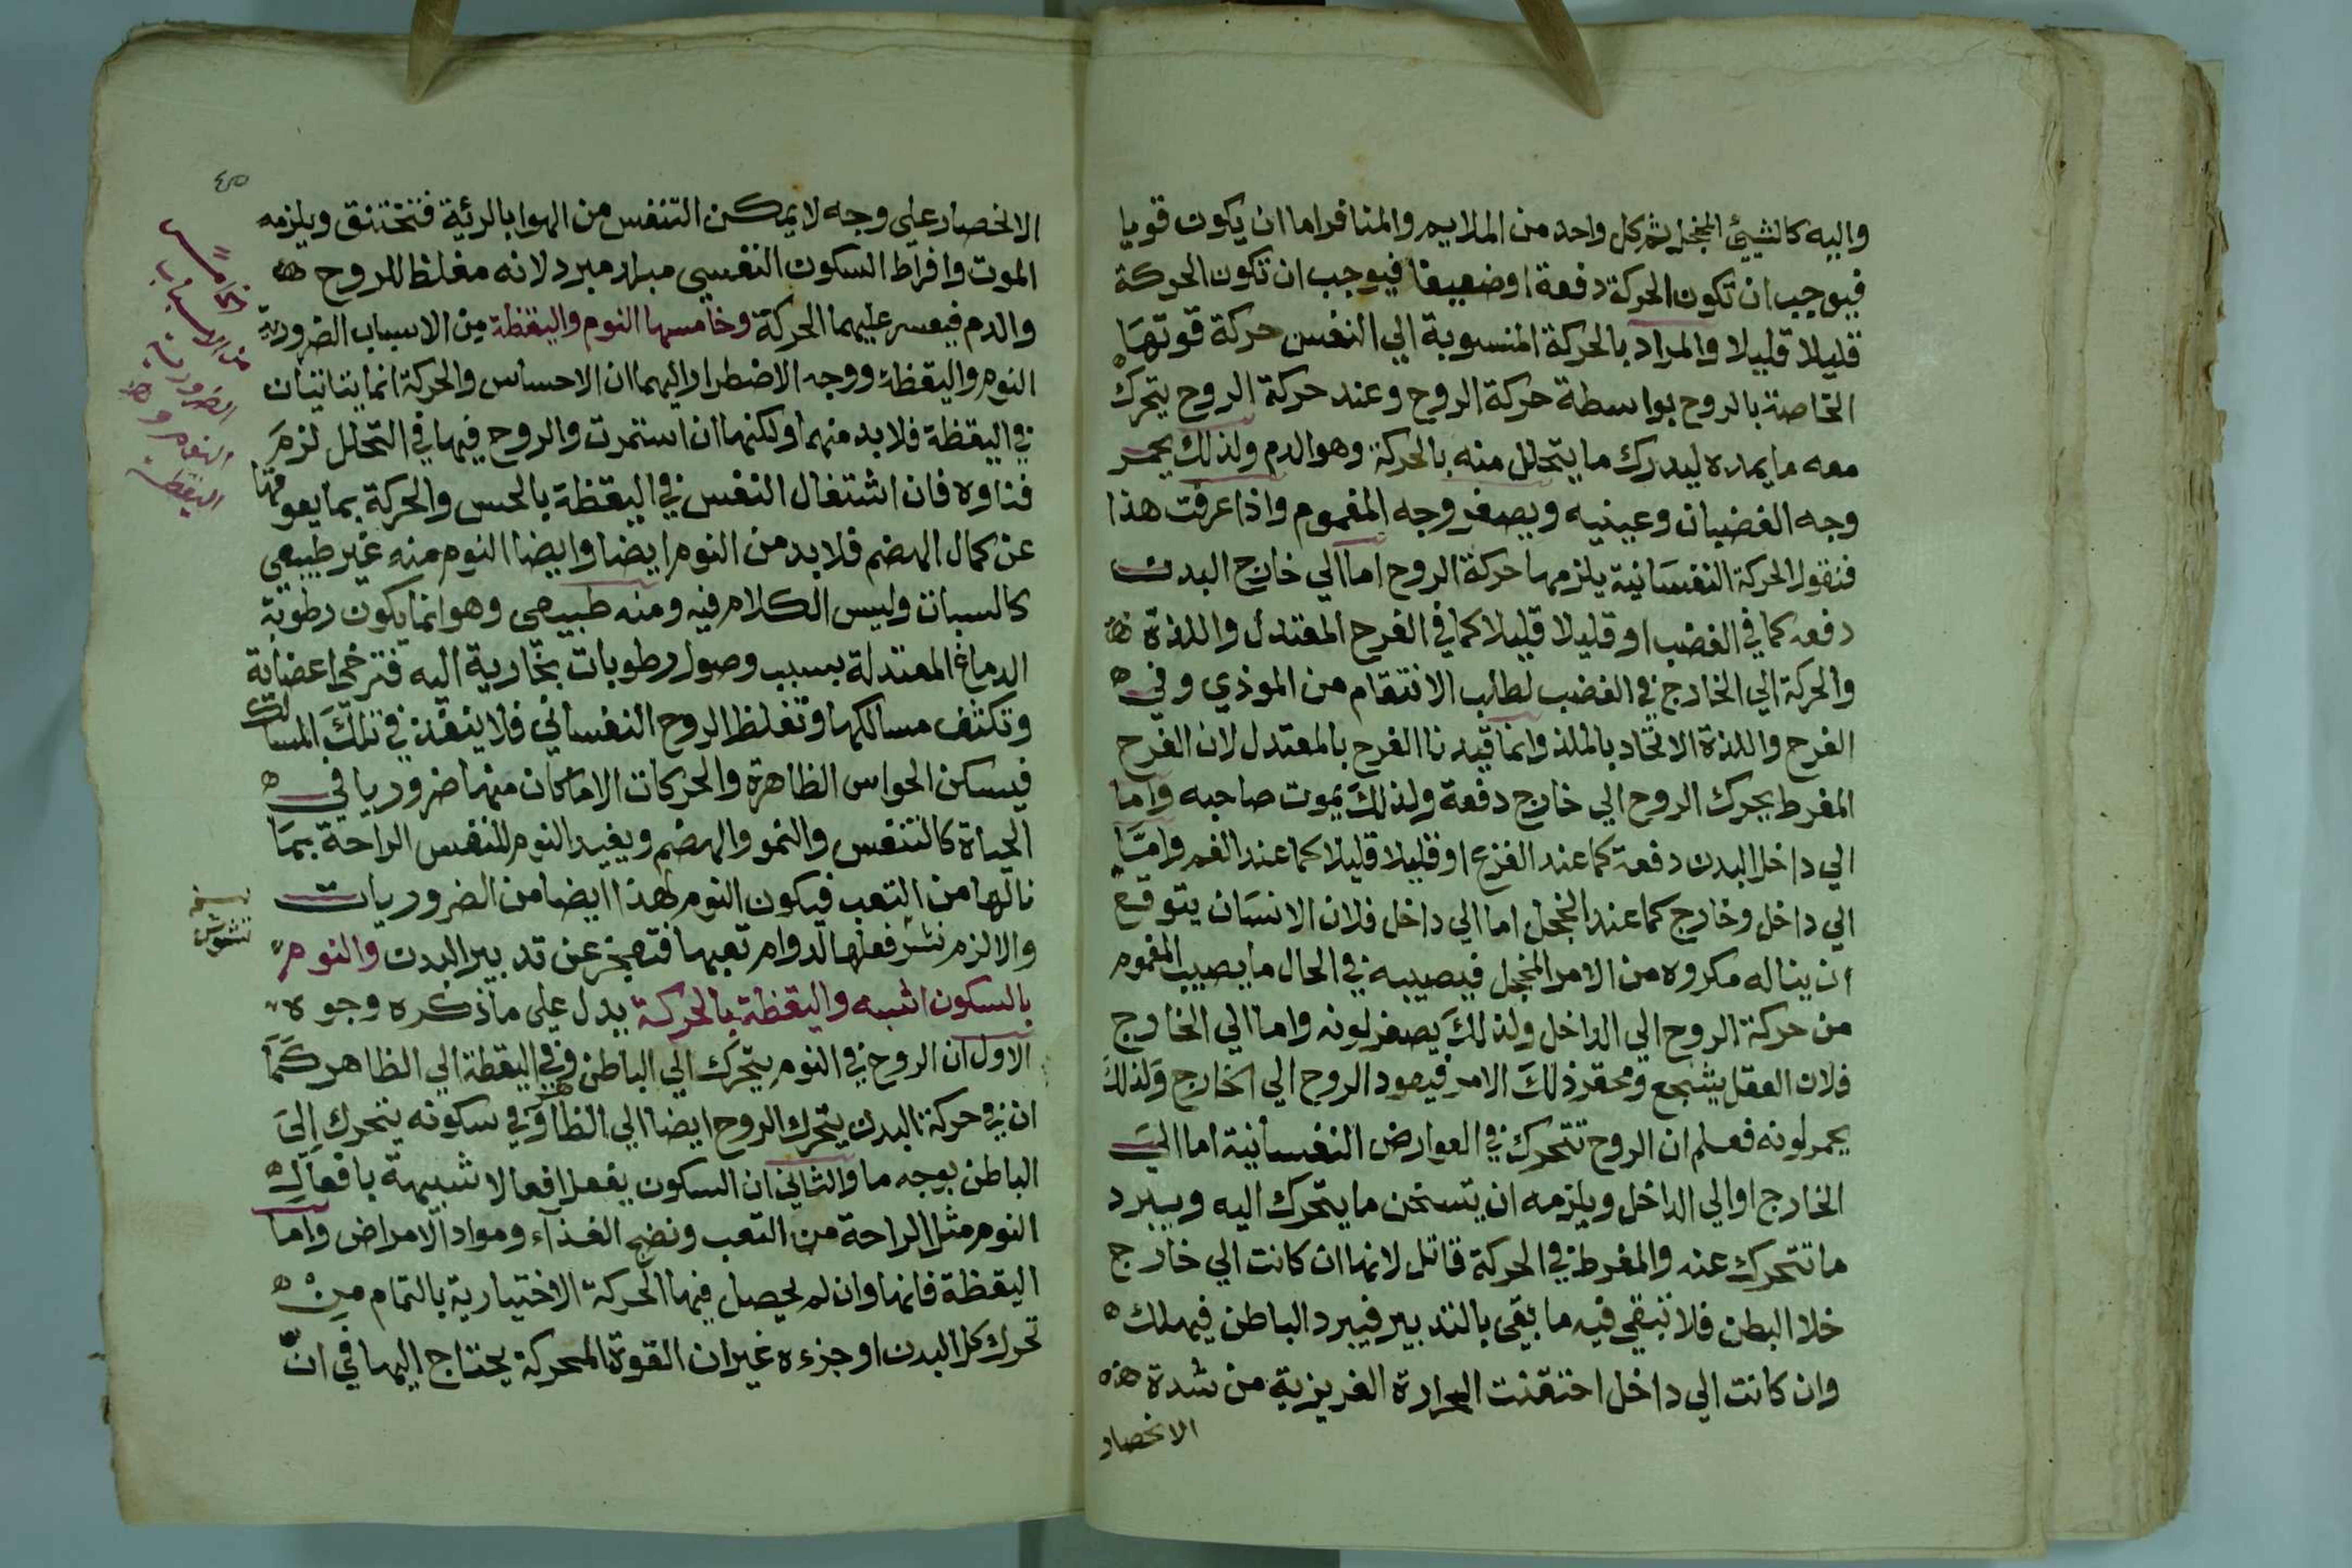 واليه كالشيئ المخجل ثم كل واحد من الملايم والمنافر اما ان يكون قويا
فيوجب ان تكون الحركة دفعة او ضعيفا فيوجب ان تكون الحركة
قليلا قليلا والمراد بالحركة المنسوبة الي النفس حركة قوتها
الخاصة بالروح بواسطة حركة الروح وعند حركة الروح يتحرك
معه ما يمده ليدرك ما يتحلل منه بالحركة وهو الدم ولذلك يحمر
وجه الغضبان وعينيه ويصفر وجه المغموم واذا عرفت هذا
فنقول الحركة النفسانية يلزمها حركة الروح اما الي خارج البدن
دفعه كما في الغضب او قليلا قليلا كما في الفرح المعتدل واللذة
والحركة الي الخارج في الغضب لطلب الانتقام من الموذي وفي
الفرح واللذة الاتحاد بالملذ وانما قيدنا الفرح بالمعتدل لان الفرح
المفرط يحرك الروح الي خارج دفعة ولذلك يموت صاحبه واما
الي داخل البدن دفعة كما عند الفزع او قليلا قليلا كما عند الغم واما
الي داخل وخارج كما عند الخجل اما الي داخل فلان الانسان يتوقع
ان يناله مكروه من الامر المخجل فيصيبه في الحال ما يصيب المغموم
من حركة الروح الي الداخل ولذلك يصفر لونه واما الي الخارج
فلان العقل يتشجع ومحقر ذلك الامر فيعود الروح الي الخارج ولذلك
يحمر لونه فعلم ان الروح تتحرك في العوارض النفسانية اما الي
الخارج او الي الداخل ويلزمه ان يتسخن ما يتحرك اليه ويبرد
ما تتحرك عنه والمفرط في الحركة قاتل لانها ان كانت الي خارج
خلا البطن فلا تبقي فيه ما يقي بالتدبير فيبرد الباطن فيهلك
وان كانت الي داخل احتقنت الحرارة الغريزية من شدة هذه
الانحصار
٤٥
الانحصار علي وجه لا يمكن التنفس من الهوا بالرئية فتختنق ويلزمه
الموت وافراط السكون النفسي مبلد مبرد لانه مغلظ للروح
والدم فيعسر عليهما الحركة وخامسها النوم واليقظة من الاسباب الضرورية
النوم واليقظة ووجه الاضطرار اليهما ان الاحساس والحركة انما يتاتيان
في اليقظة فلا بد منها ولكنها ان استمرت والروح فيها في التحلل لزم
فناوه فان اشتغال النفس في اليقظة بالحس والحركة بما يعوقها
عن كمال الهضم فلا بد من النوم ايضا وايضا النوم منه غير طبيعي
كالسبات وليس الكلام فيه ومنه طبيعي وهو انما يكون رطوبة
الدماغ المعتدلة بسبب وصول رطوبات بخارية اليه فترخي اعضابة
وتكثف مسالكها وتغلظ الروح النفساني فلا ينفذ في تلك المسالك
فيسكن الحواس الظاهرة والحركات الا ما كان منها ضروريا في
الحياة كالتنفس والنمو والهضم ويفيد النوم للنفس الراحة بما
نالها من التعب فيكون النوم لهذا ايضا من الضروريات
والا لزم فعلها لدوام تعبها فتعجز عن تدبير البدن والنوم
بالسكون اشبه واليقظة بالحركة يدل علي ما ذكره وجوه
الاول ان الروح في النوم يتحرك الي الباطن وفي اليقظة الي الظاهر كما
ان في حركة البدن يتحرك الروح ايضا الي الظاهر وفي سكونه يتحرك الي
الباطن بوجه ما والثاني ان السكون يفعل افعالا شبيهة بافعال
النوم مثل الراحة من التعب ونضج الغذاء ومواد الامراض واما
اليقظة فانها وان لم يحصل فيها الحركة الاختيارية بالتمام من
تحرك كل البدن او جزءه غير ان القوة المحركة يحتاج اليها في ان
الخامس
من الاسباب
الضرورية
النوم و
اليقظة
نسخة
تشوش